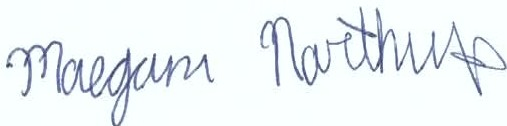 Maegan Northup